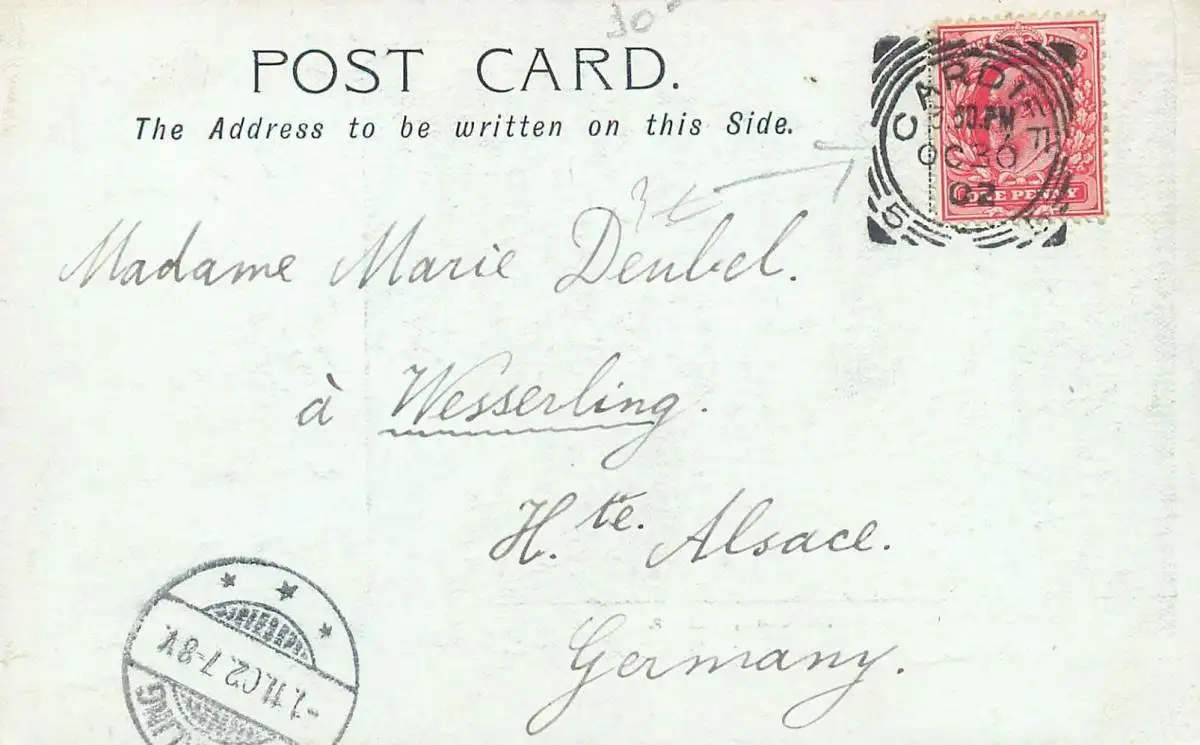 30-
POST CARD.
The Address to be written on this Side.
CARDIFF
30.PM
OC 30
02
5
ONE PENNY
Madame Marie Deubel.
à Wesserling.
H.te. Alsace.
Germany.
-1.11.02.7-8V.